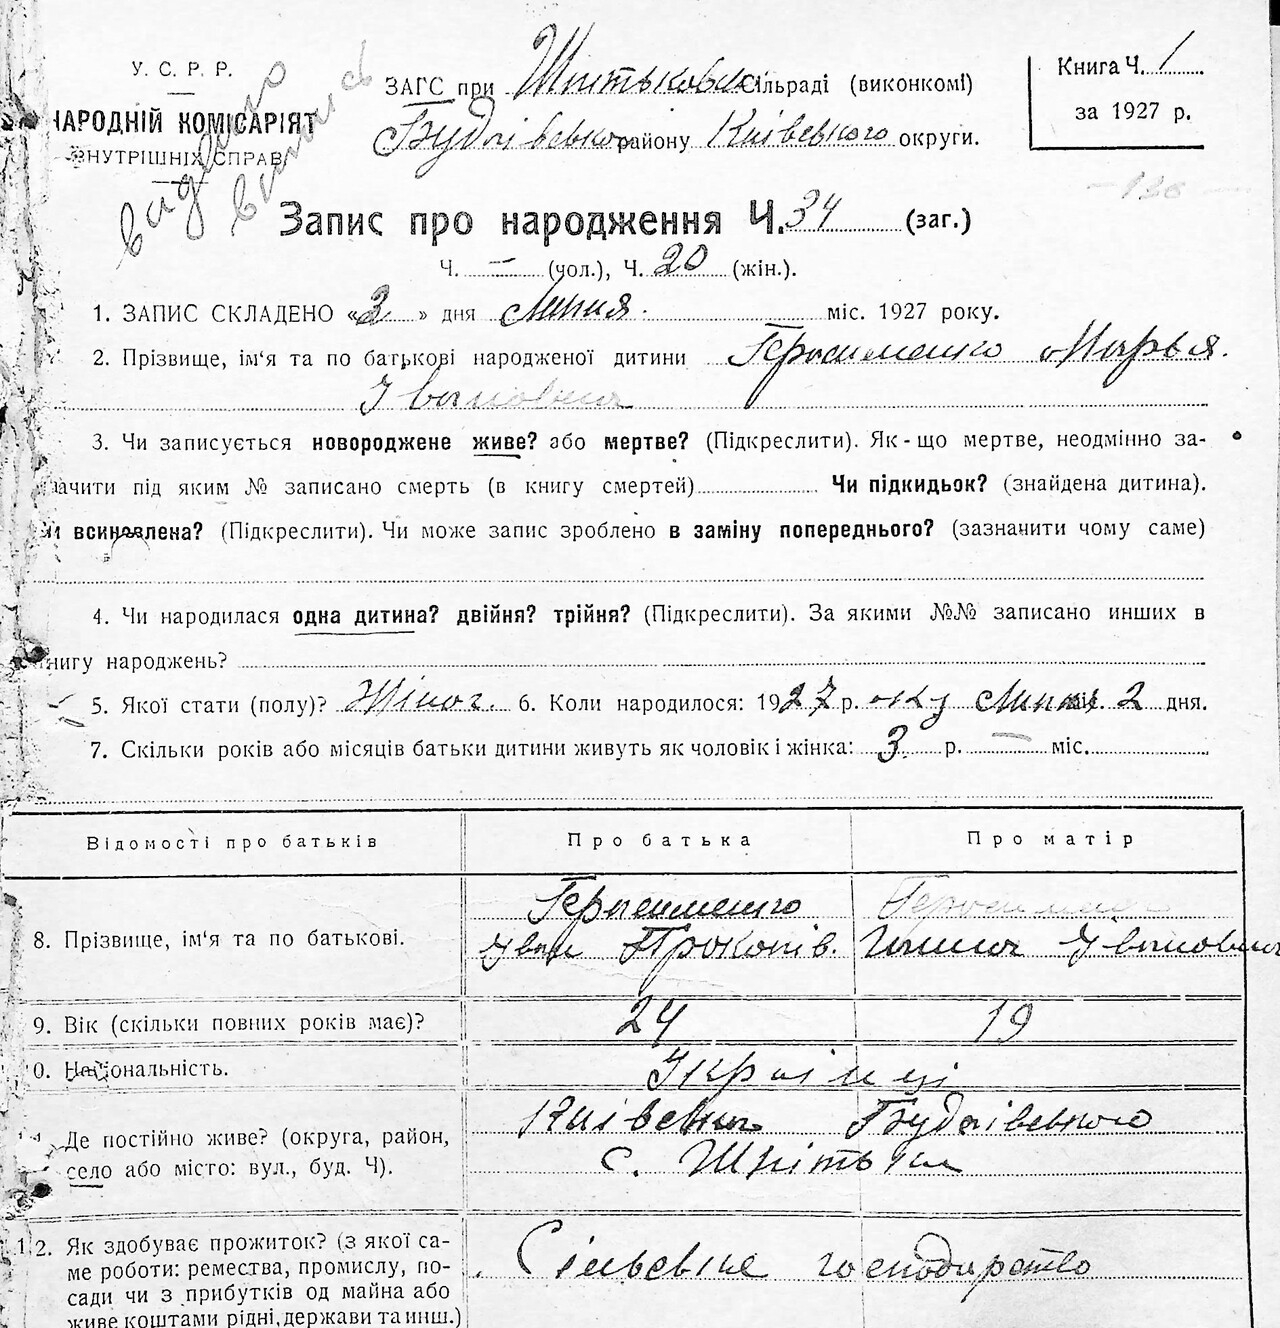 У. С. Р. Р.
НАРОДНІЙ КОМІСАРІЯТ
ВНУТРІШНІХ СПРАВ
видано
виписъ
ЗАГС при Шпитьковск. сільраді (виконкомі)
Будаївсько району Київського округи.
Книга Ч. 1
за 1927 р.
Запис про народження Ч. 34 (заг.)
Ч. — (чол.), Ч. 20 (жін.).
1. ЗАПИС СКЛАДЕНО « 2 » дня Липня міс. 1927 року.
2. Прізвище, ім‘я та по батькові народженої дитини Герасименко Марья
Івановна
3. Чи записується новороджене живе? або мертве? (Підкреслити). Як-що мертве, неодмінно за-
значити під яким № записано смерть (в книгу смертей) Чи підкидьок? (знайдена дитина).
Чи всиновлена? (Підкреслити). Чи може запис зроблено в заміну попереднього? (зазначити чому саме)
4. Чи народилася одна дитина? двійня? трійня? (Підкреслити). За якими №№ записано инших в
книгу народжень?
5. Якої стати (полу)? Жіноч. 6. Коли народилося: 1927 р. Липня 2 дня.
7. Скільки років або місяців батьки дитини живуть як чоловік і жінка: 3 р. — міс.
Відомості про батьків Про батька Про матір
8. Прізвище, ім‘я та по батькові. Герасименко Іван Прокопів. Герасименко Ганна Івановна
9. Вік (скільки повних років має)? 24 19
10. Національність. Українці
Де постійно живе? (округа, район, Київського Будаївського
село або місто: вул., буд. Ч). с. Шпітьки
12. Як здобуває прожиток? (з якої са- Сільське господарство
ме роботи: ремества, промислу, по-
сади чи з прибутків од майна або
живе коштами рідні, держави та инш.)